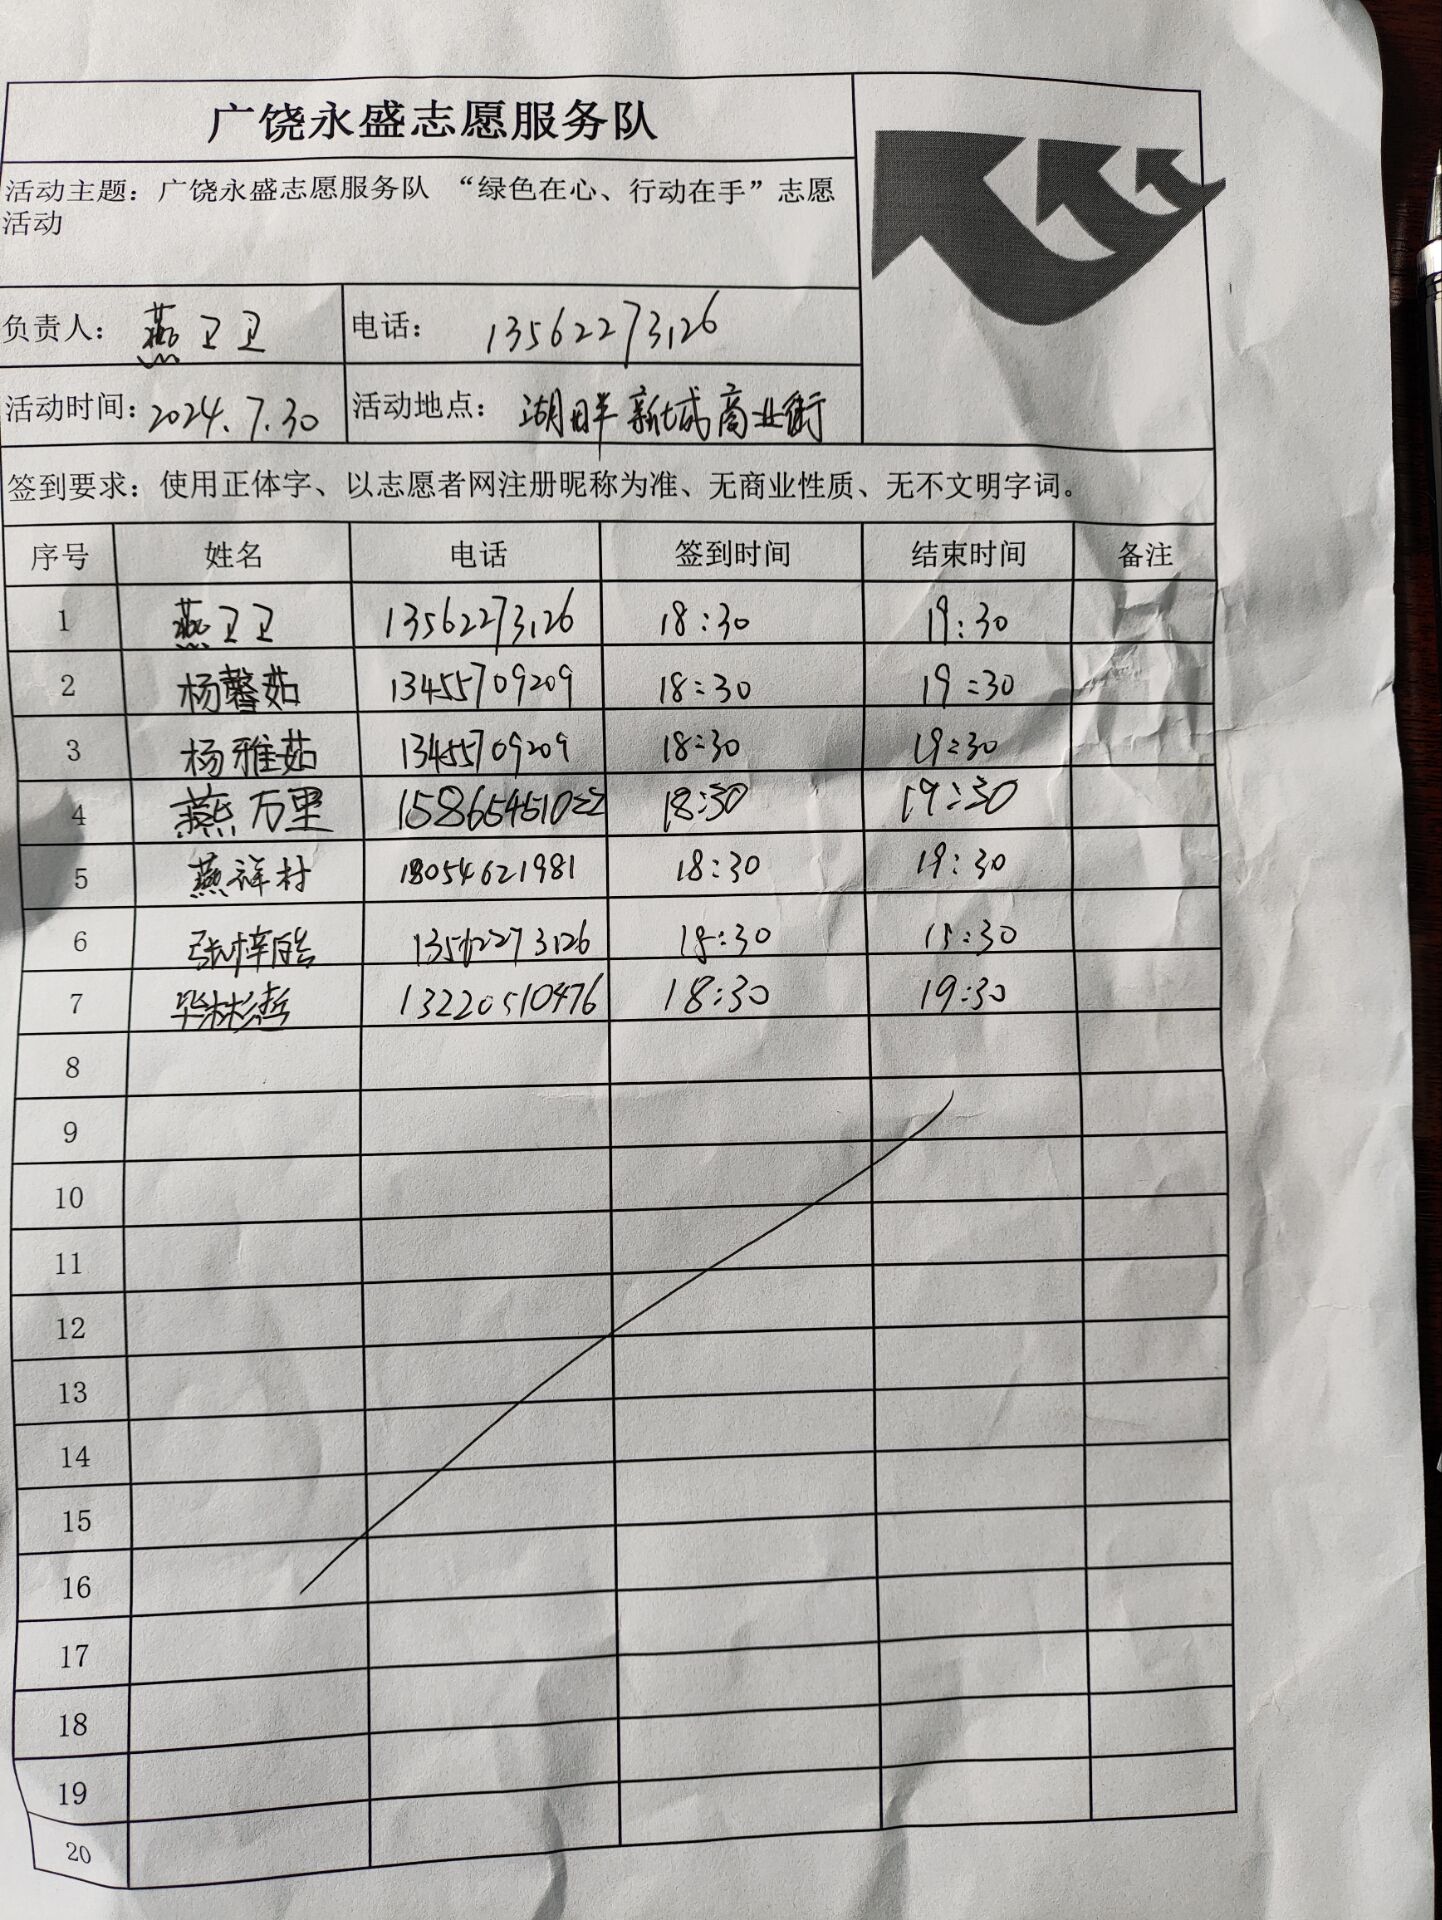 广饶永盛志愿服务队
活动主题：广饶永盛志愿服务队 “绿色在心、行动在手”志愿
活动
负责人： 燕卫卫 电话： 13562273126
活动时间：2024.7.30 活动地点： 湖畔新城商业街
签到要求：使用正体字、以志愿者网注册昵称为准、无商业性质、无不文明字词。
序号 姓名 电话 签到时间 结束时间 备注
1 燕卫卫 13562273126 18:30 19:30
2 杨馨茹 13455709209 18:30 19:30
3 杨雅茹 13455709209 18:30 19:30
4 燕万里 15865451022 18:30 19:30
5 燕祥村 18054621981 18:30 19:30
6 张梓皓 13562273126 18:30 19:30
7 13220510476 18:30 19:30
8
9
10
11
12
13
14
15
16
17
18
19
20